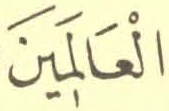 الْعَالَمِينَ